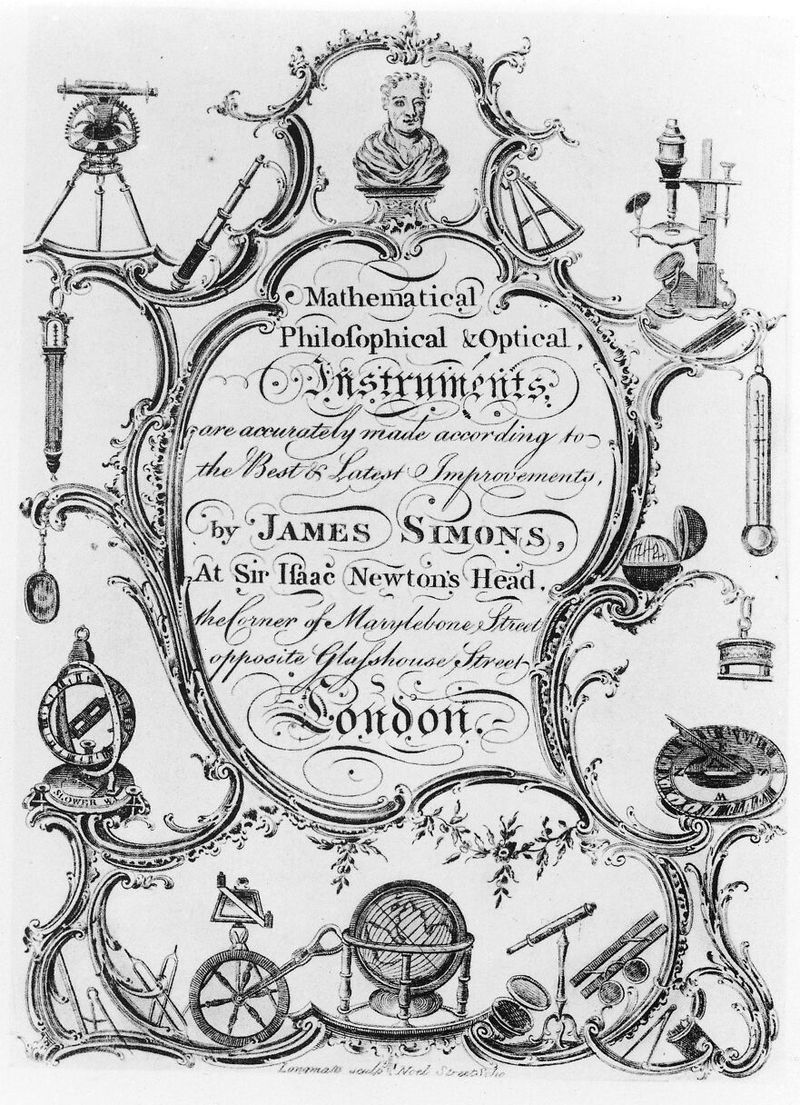 Mathematical
Philoſophical & Optical,
Instruments,
are accurately made according to
the Best & Latest Improvements,
by JAMES SIMONS,
At Sir Iſaac Newton's Head,
the Corner of Marylebone Street
opposite Glaſshouse Street
London.
SLOWER
N
S
W
Longmate sculpt. Noel Street Soho